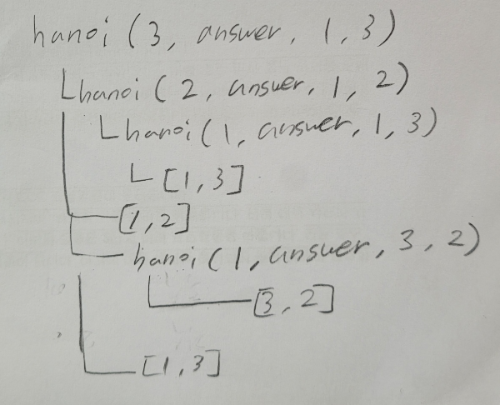 hanoi (3, answer, 1, 3)
hanoi (2, answer, 1, 2)
hanoi (1, answer, 1, 3)
[1, 3]
[1, 2]
hanoi (1, answer, 3, 2)
[3, 2]
[1, 3]